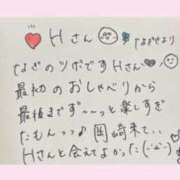 Hさん なぎさより
なぎのツボですHさん
最初のおしゃべりから
最後までず〜〜っと楽しすぎ
たもんっっ 岡崎来て、、
Hさんと会えてよかった(´-`)